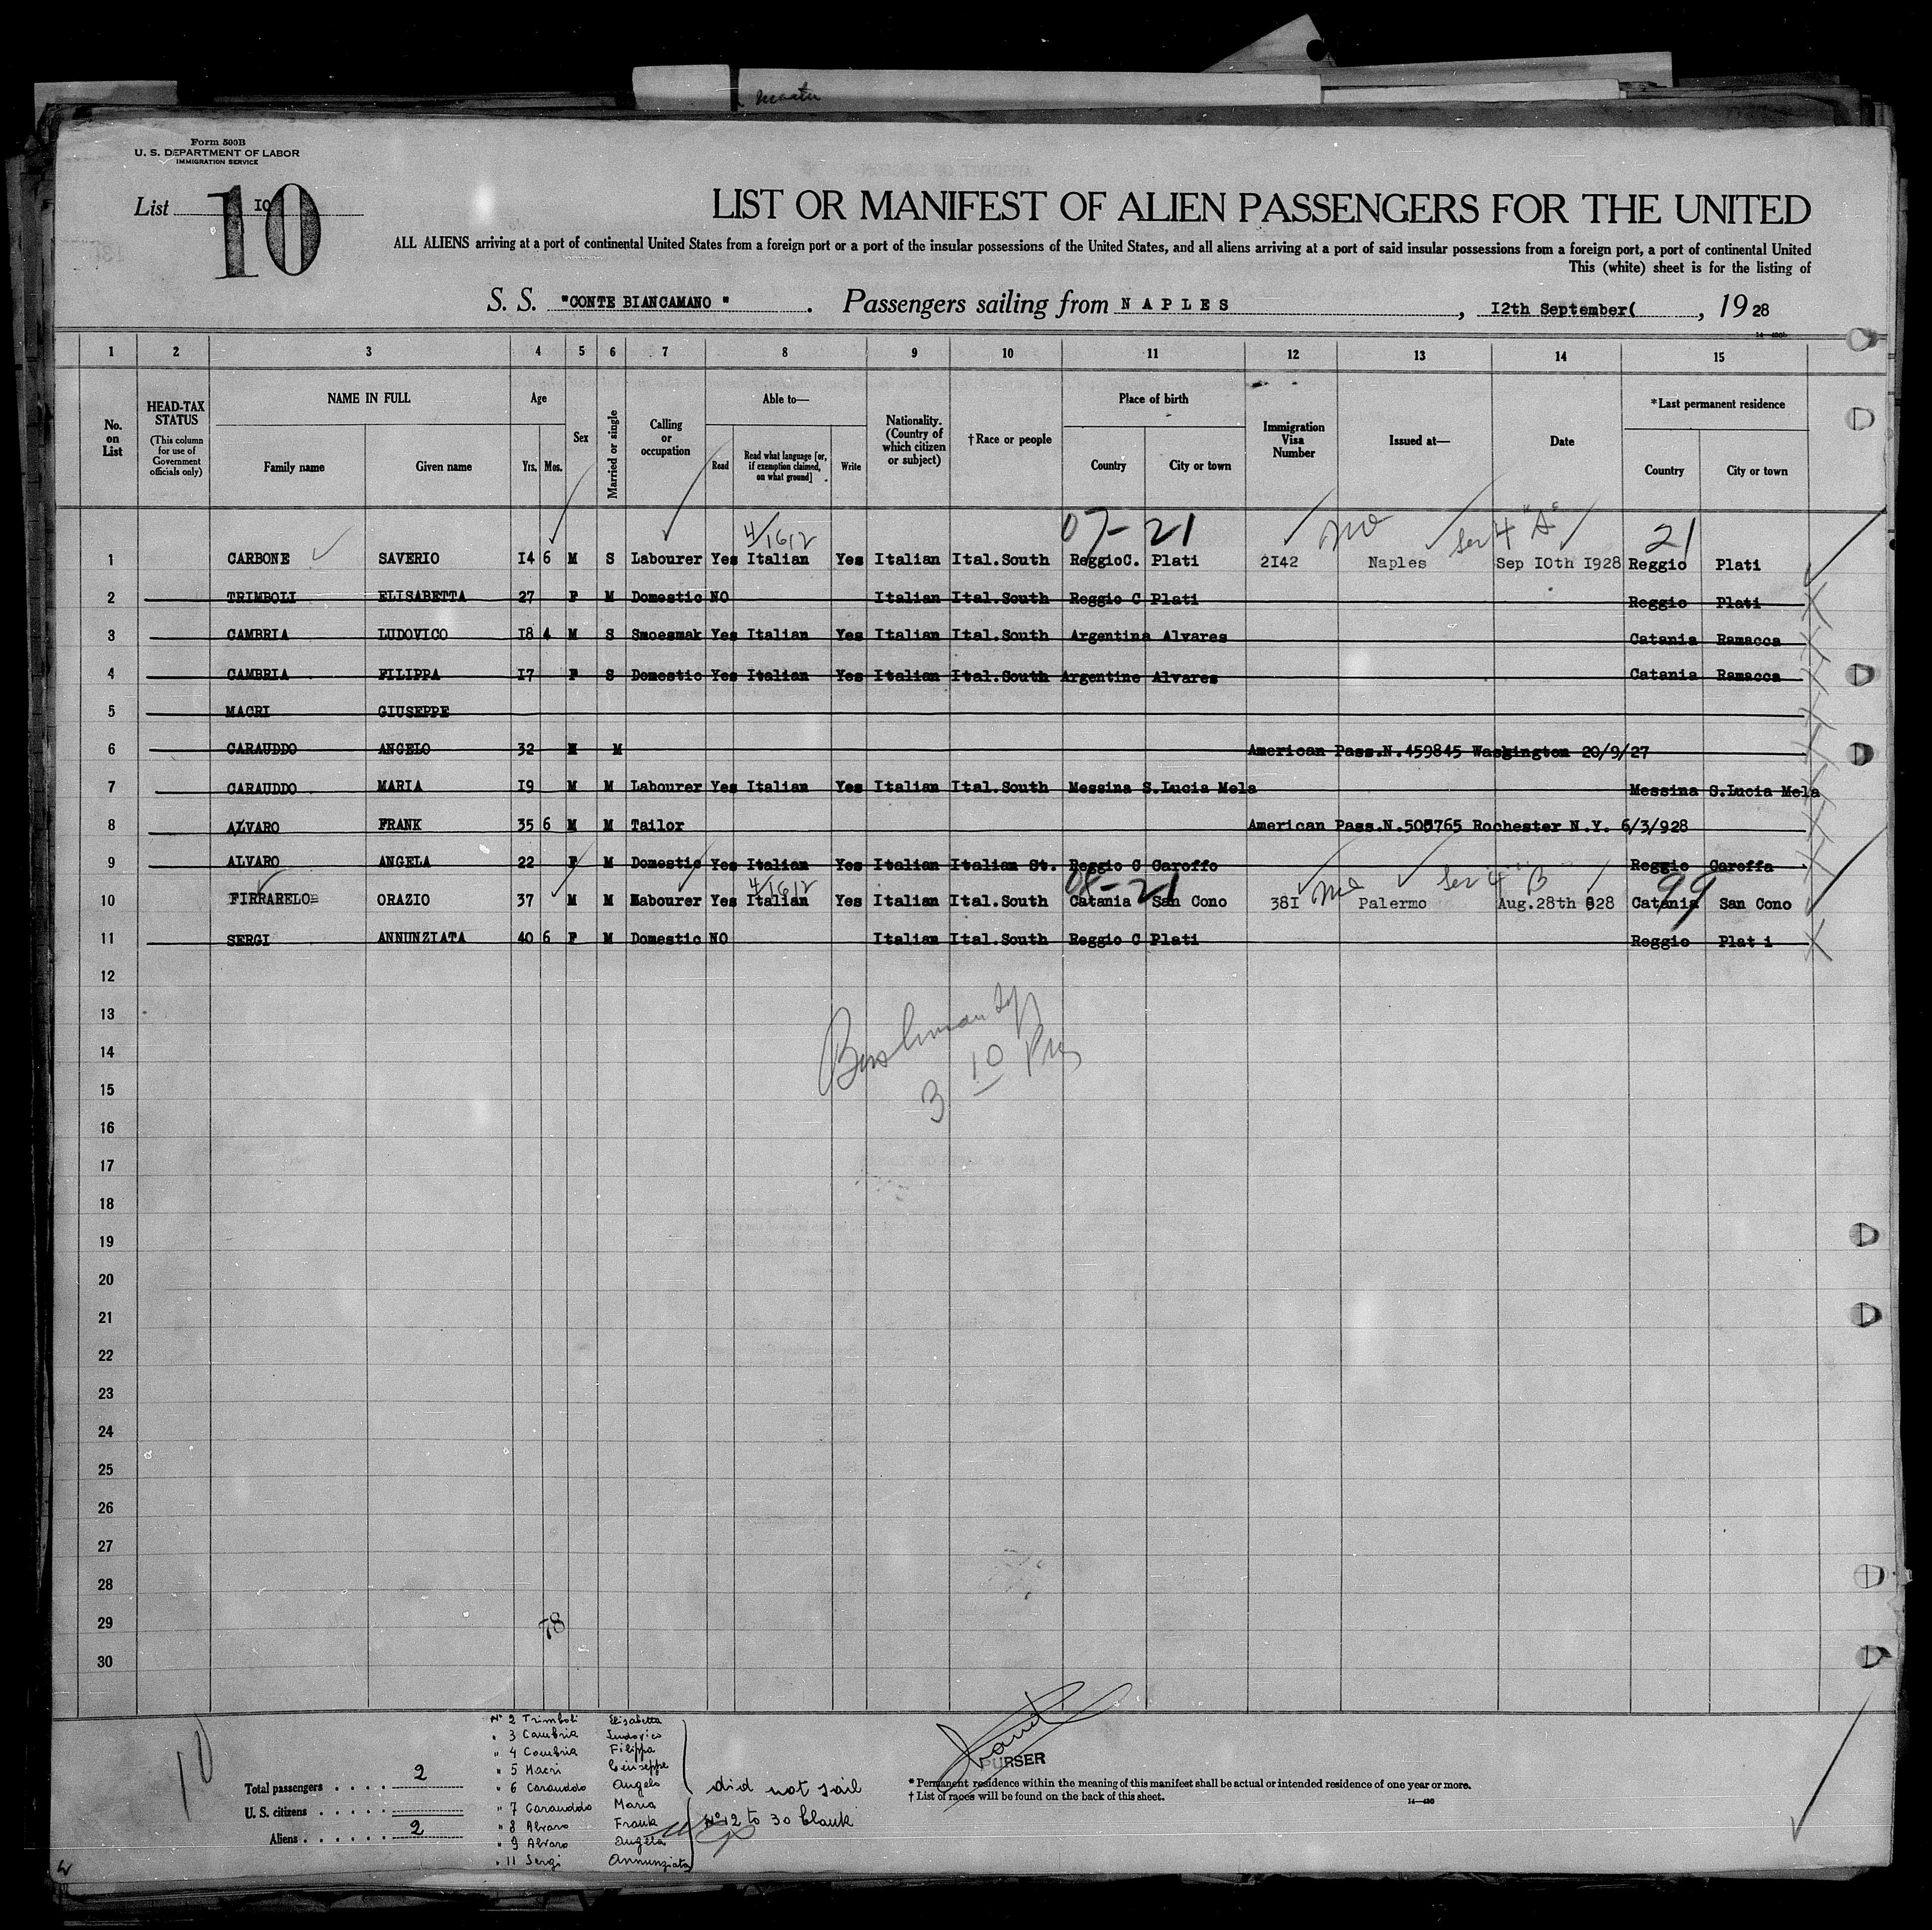 Form 500B
U. S. DEPARTMENT OF LABOR
IMMIGRATION SERVICE
List IO
10
LIST OR MANIFEST OF ALIEN PASSENGERS FOR THE UNITED
ALL ALIENS arriving at a port of continental United States from a foreign port or a port of the insular possessions of the United States, and all aliens arriving at a port of said insular possessions from a foreign port, a port of continental United
This (white) sheet is for the listing of
S. S. "CONTE BIANCAMANO ". Passengers sailing from N A P L E S, I2th September(, 19 28
1 2 3 4 5 6 7 8 9 10 11 12 13 14 15
No. on List
HEAD-TAX STATUS (This column for use of Government officials only)
NAME IN FULL
Family name
Given name
Age
Yrs. Mos.
Sex
Married or single
Calling or occupation
Able to—
Read
Read what language [or, if exemption claimed, on what ground]
Write
Nationality. (Country of which citizen or subject)
†Race or people
Place of birth
Country
City or town
Immigration Visa Number
Issued at—
Date
*Last permanent residence
Country
City or town
4/16/2 07-21 Ser 4 "A" 21
1 CARBONE SAVERIO I4 6 M S Labourer Yes Italian Yes Italian Ital.South ReggioC. Plati 2I42 Naples Sep IOth I928 Reggio Plati
2 TRIMBOLI ELISABETTA 27 F M Domestic NO Italian Ital.South Reggio C Plati Reggio Plati
3 CAMBRIA LUDOVICO I8 4 M S Smoesmak Yes Italian Yes Italian Ital.South Argentina Alvares Catania Ramacca
4 CAMBRIA FILIPPA I7 F S Domestic Yes Italian Yes Italian Ital.South Argentine Alvares Catania Ramacca
5 MACRI GIUSEPPE
6 CARAUDDO ANGELO 32 M M American Pass.N.459845 Washington 20/9/27
7 CARAUDDO MARIA I9 M M Labourer Yes Italian Yes Italian Ital.South Messina S.Lucia Mela Messina S.Lucia Mela
8 ALVARO FRANK 35 6 M M Tailor American Pass.N.505765 Rochester N.Y. 6/3/928
9 ALVARO ANGELA 22 F M Domestic Yes Italian Yes Italian Italian St. Reggio C Caroffo Reggio Caroffa
4/16/2 08-21 Ser 4 "B 99
10 FIRRARELO ORAZIO 37 M M Labourer Yes Italian Yes Italian Ital.South Catania San Cono 38I Palermo Aug.28th 928 Catania San Cono
11 SERGI ANNUNZIATA 40 6 F M Domestic NO Italian Ital.South Reggio C Plati Reggio Plat i
12
13
14
15
16
17
18
19
20
21
22
23
24
25
26
27
28
29
30
3 10
78
10
Nº 2 Trimboli Elisabetta
" 3 Cambria Ludovico
" 4 Cambria Filippa
" 5 Macri Giuseppe
" 6 Carauddo Angelo
" 7 Carauddo Maria
" 8 Alvaro Frank
" 9 Alvaro Angela
" 11 Sergi Annunziata
did not sail
Nº 12 to 30 blank
Total passengers 2
U. S. citizens
Aliens 2
PURSER
* Permanent residence within the meaning of this manifest shall be actual or intended residence of one year or more.
† List of races will be found on the back of this sheet.